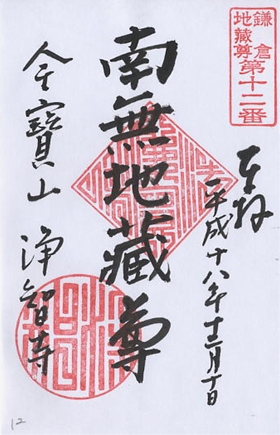 鎌倉
地蔵尊
第十二番
奉拝
平成十八年十二月十日
南無地蔵尊
金宝山
浄智寺
12